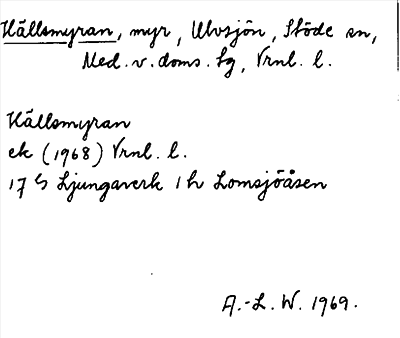 Hällsmyran, myr, Ulvsjön, Stöde sn,
Med. v. doms. tg, Vrnl. l.
Hällsmyran
ek (1968) Vrnl. l.
17 G Ljungaverk 1 h Lomsjöåsen
A.-L. W. 1969.